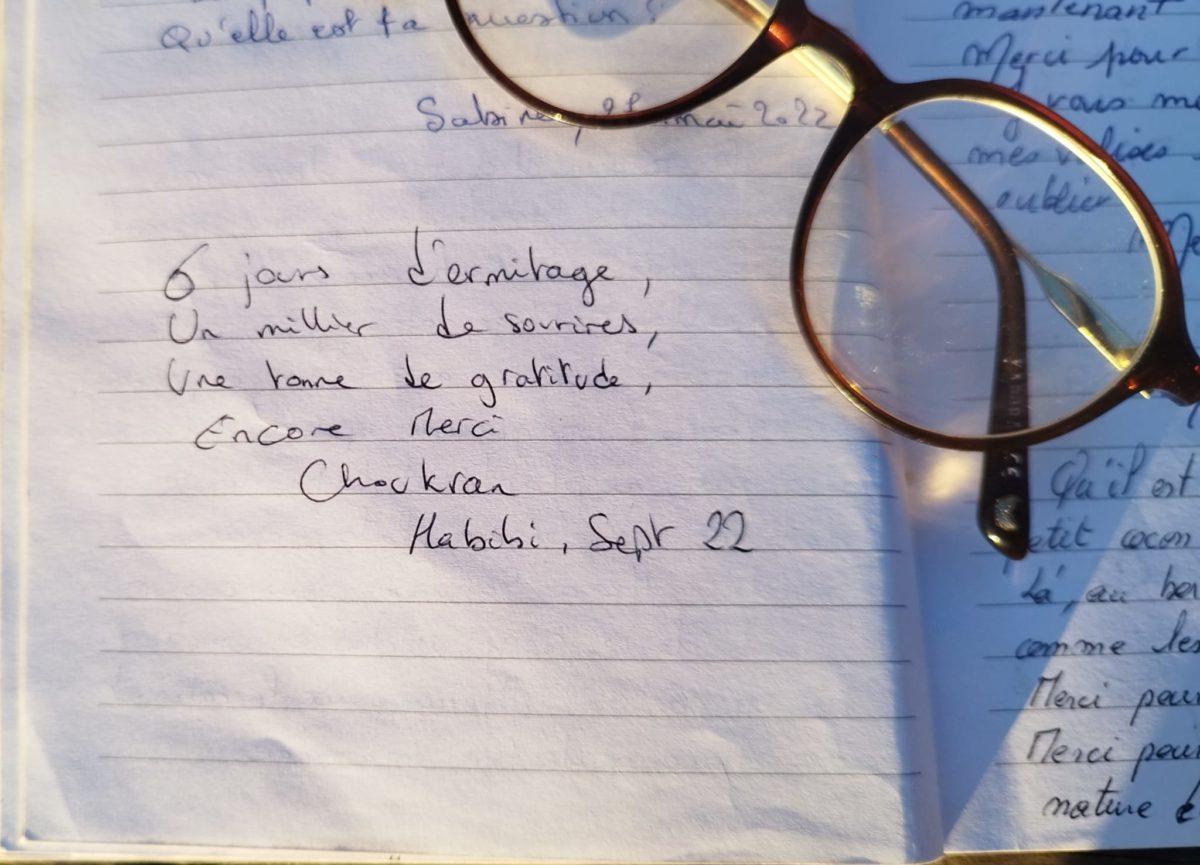 Qu'elle est ta question ?
Sabine, mai 2022
6 jours d'ermitage,
Un millier de sourires,
Une tonne de gratitude,
Encore Merci
Choukran
Habibi, Sept 22
mantenant
Merci pour
vous
mes valises
oublier
Qu'il est
petit cocon
Là, au
comme les
Merci pour
Merci pour
nature